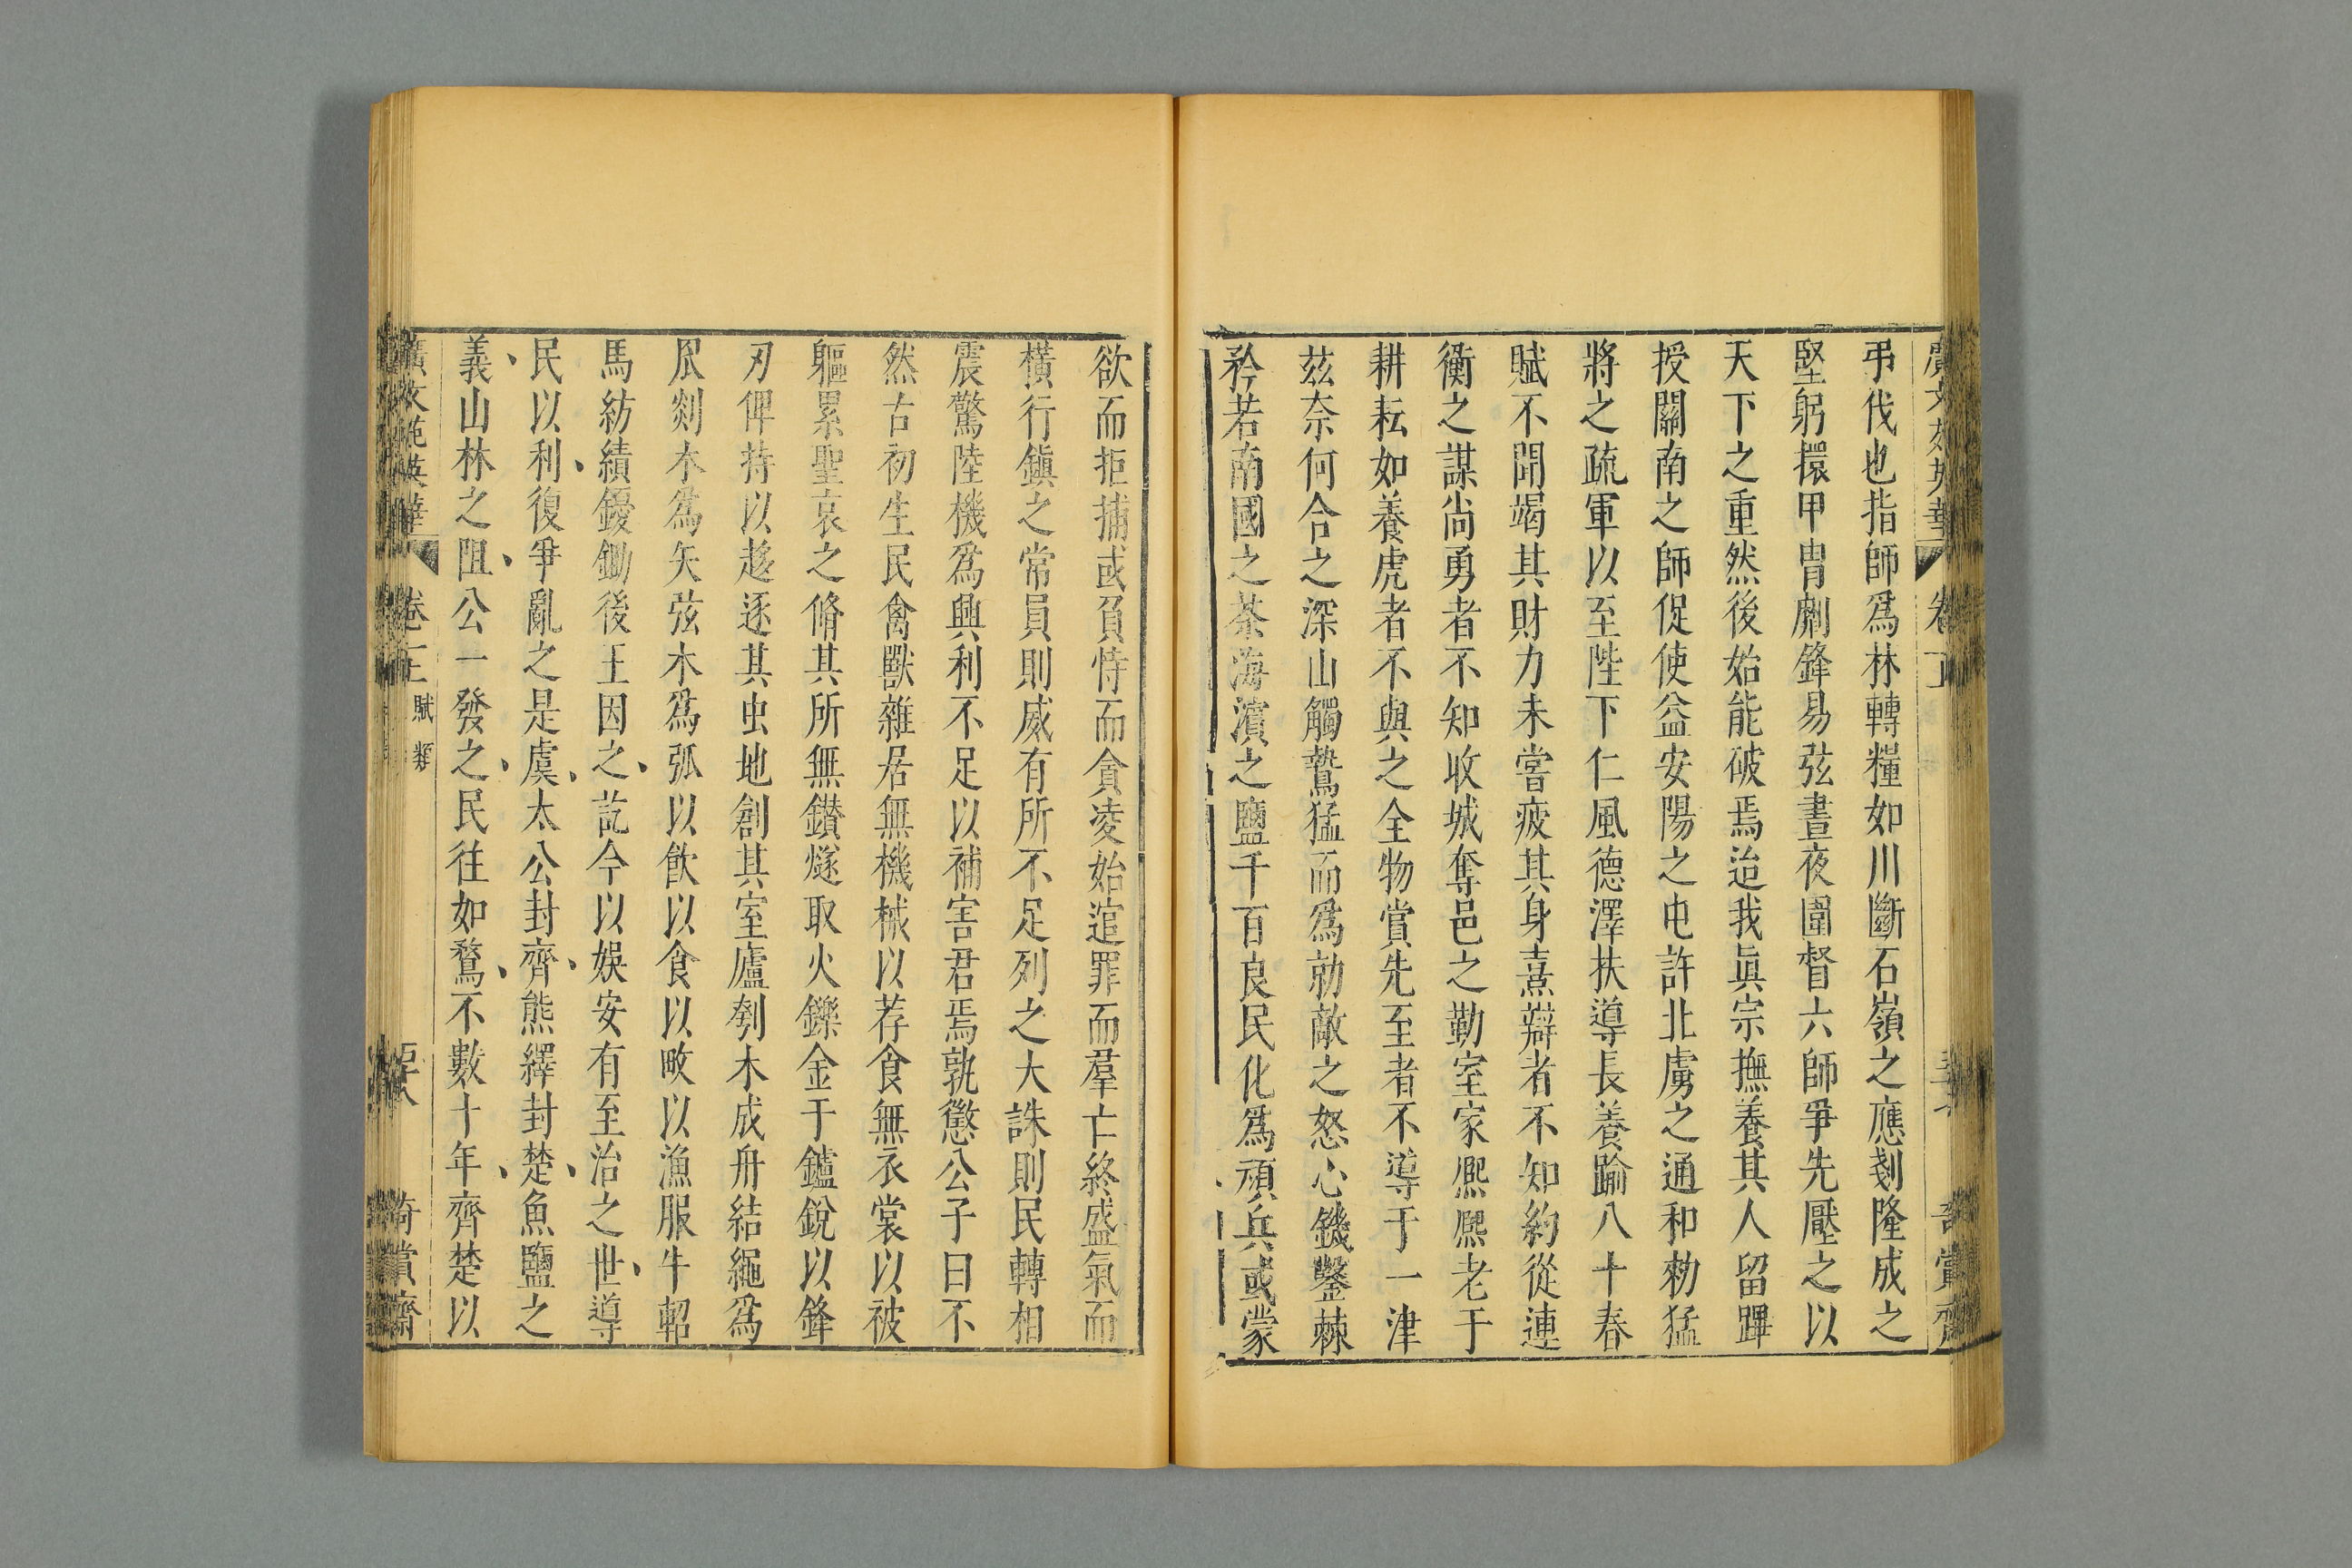 弔伐也指師爲林轉糧如川斷石嶺之應剗隆成之
堅躬擐甲冑劘鋒易弦晝夜圍督六師爭先壓之以
天下之重然後始能破焉迨我眞宗撫養其人留蹕
授關南之師促使益安陽之屯許北虜之通和勑猛
將之疏軍以至陛下仁風德澤扶導長養踰八十春
賦不聞竭其財力未嘗疲其身熹辯者不知約從連
衡之謀尚勇者不知收城奪邑之勤室家熈熈老于
耕耘如養虎者不與之全物賞先至者不導于一津
茲奈何合之深山觸鷙猛而爲勍敵之怒心鐖鑿棘
矜若南國之茶海濵之鹽千百良民化爲頑兵或蒙
欲而拒捕或負恃而貪凌始逭罪而羣亡終盛氣而
橫行鎭之常員則威有所不足列之大誅則民轉相
震驚陸機爲興利不足以補害君焉孰懲公子曰不
然古初生民禽獸雜居無機械以荐食無衣裳以被
軀累聖哀之脩其所無鑚燧取火鑠金于鑪銳以鋒
刃俾持以趍逐其虫地創其室廬刳木成舟結繩爲
罛剡木爲矢弦木爲弧以飲以食以畋以漁服牛軺
馬紡績鑀鋤後王因之訖今以娛安有至治之世導
民以利復爭亂之是虞太公封齊熊繹封楚魚鹽之
義山林之阻公一發之民往如鶩不數十年齊楚以
廣文苑英華 卷二 賦類 五十八 奇賞齋